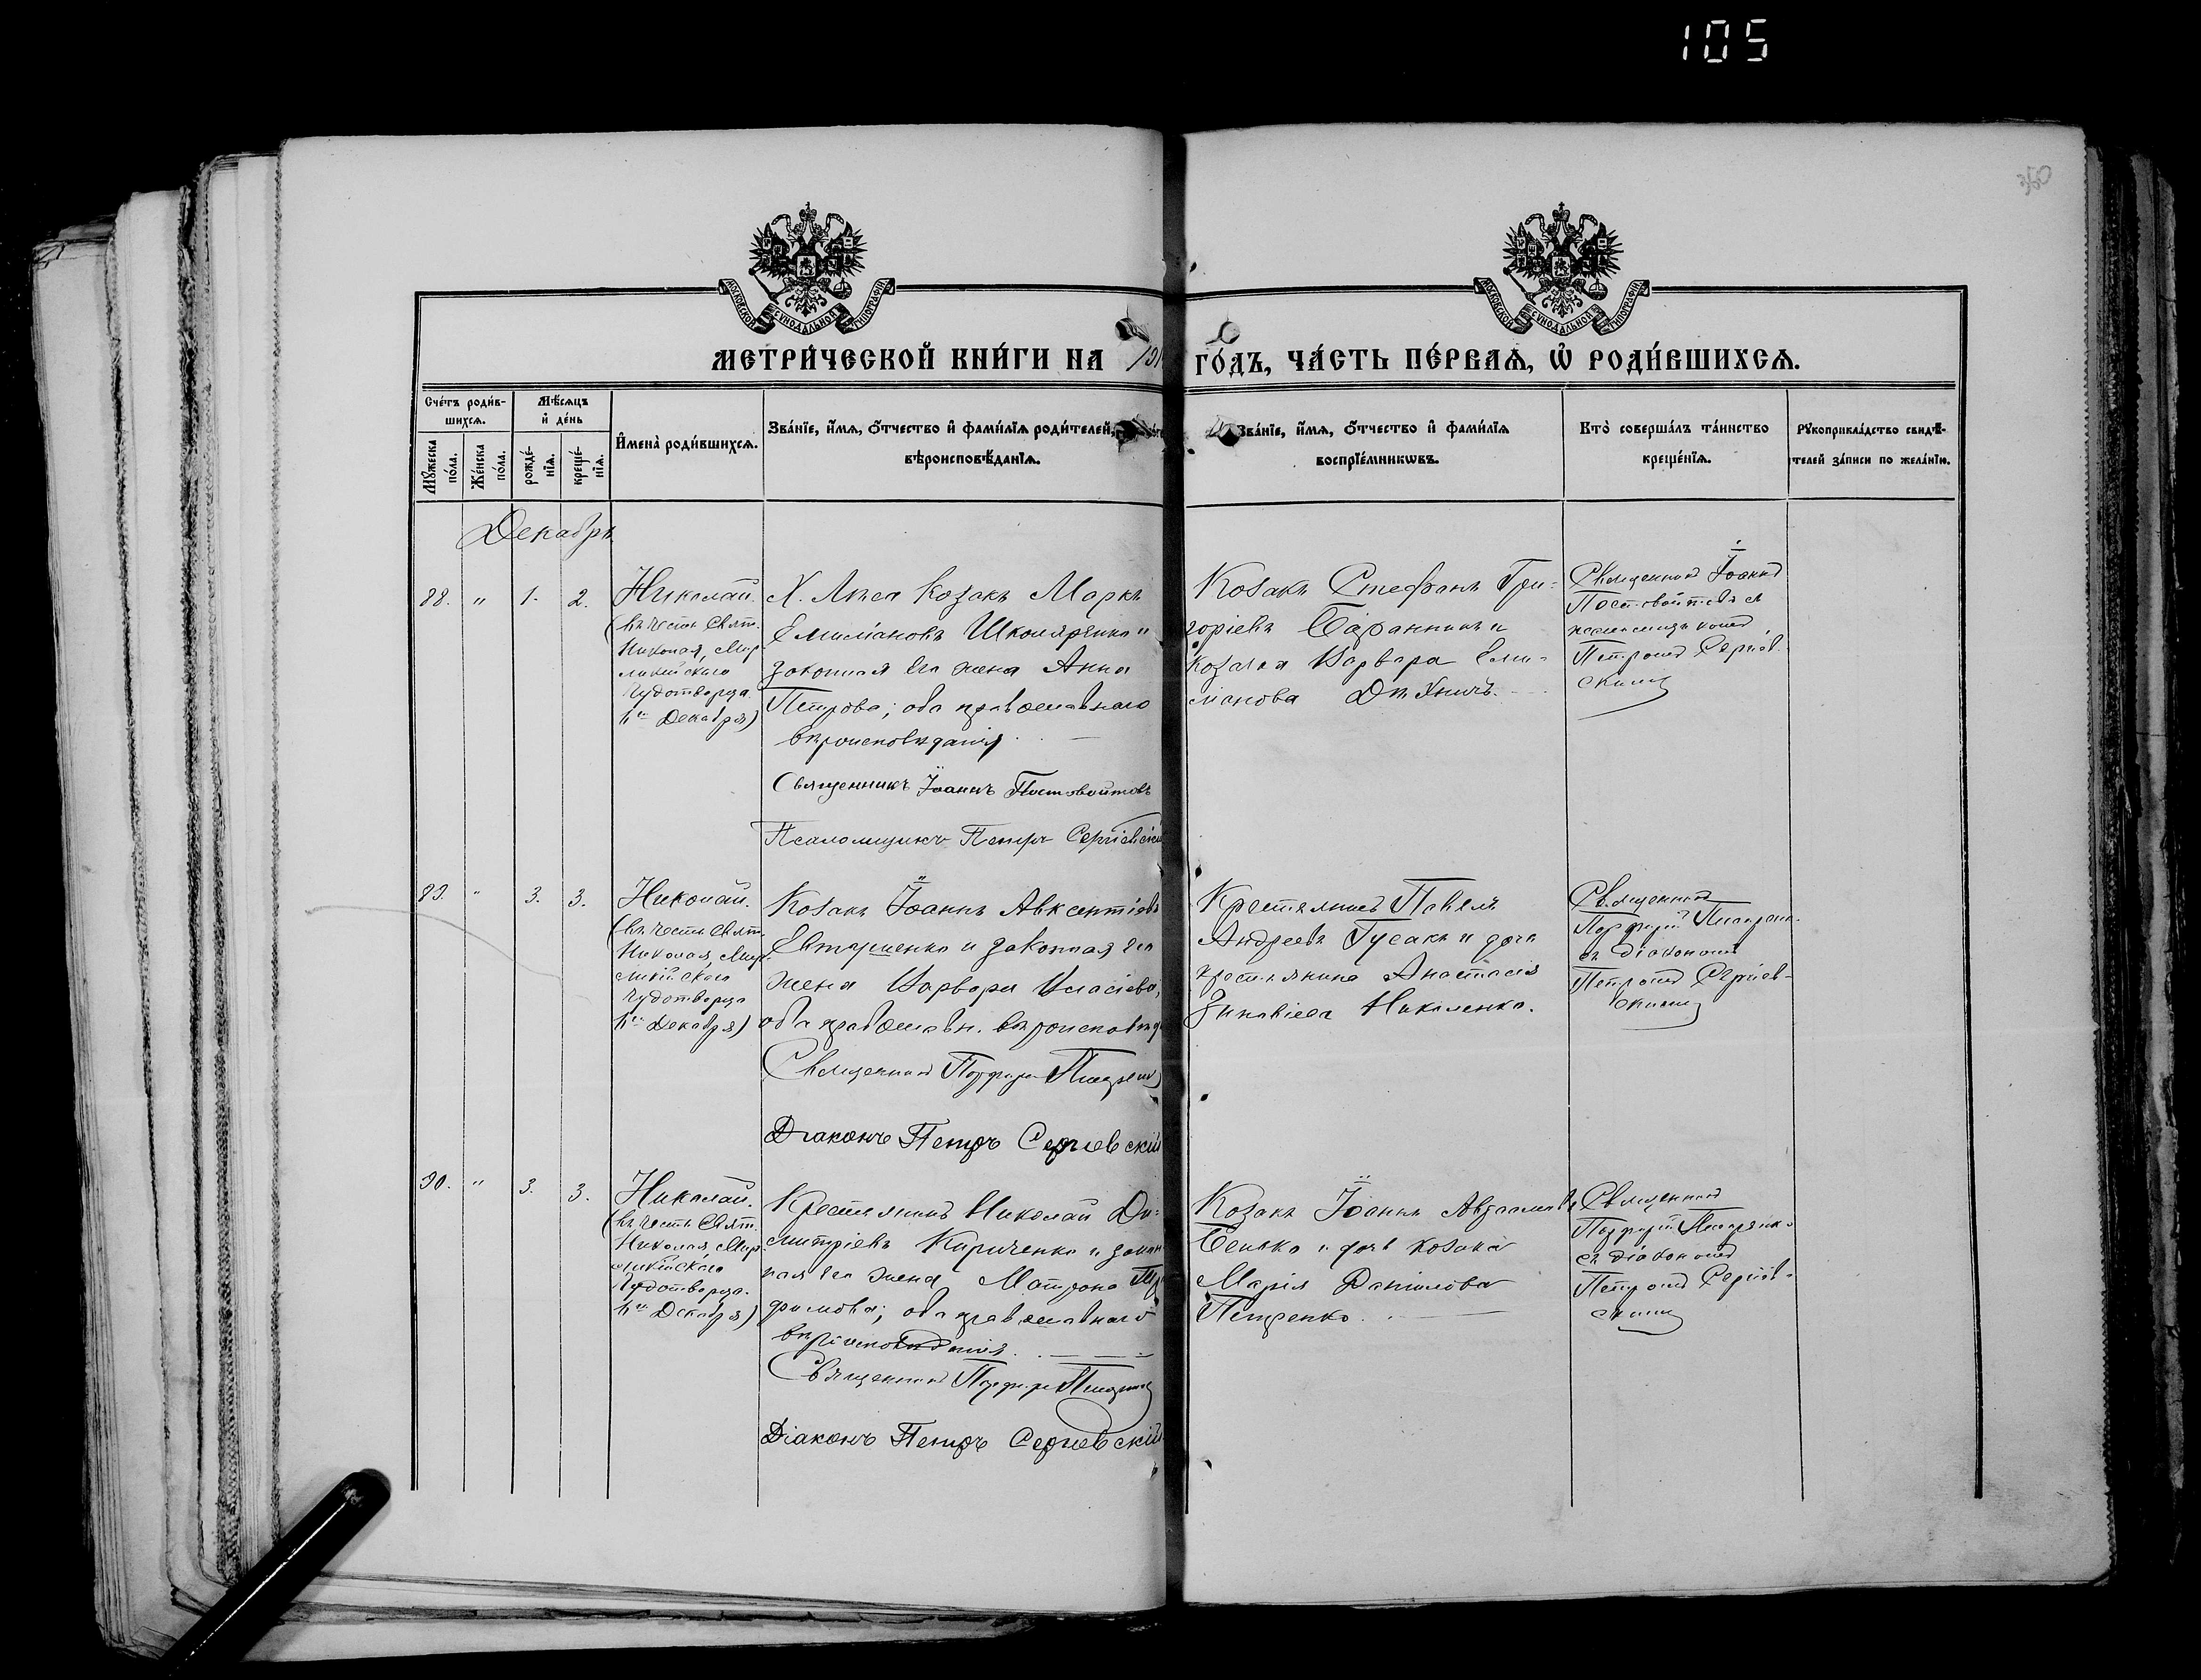 105
350
МОСКОВСКОЙ СѴНОДАЛЬНОЙ ТИПОГРАФІИ
МОСКОВСКОЙ СѴНОДАЛЬНОЙ ТИПОГРАФІИ
МЕТРИ́ЧЕСКОЙ КНИ́ГИ НА 191
ГО́ДЪ, ЧА́СТЬ ПЕ́РВАѦ, Ѡ҆ РОДИ́ВШИХСѦ.
Сче́тъ роди́в-
шихсѧ.
Мꙋ́жеска
по́ла.
Же́нска
по́ла.
Мѣ́сѧцъ
и҆ де́нь
рожде́-
нїѧ.
креще́-
нїѧ.
И҆мена̀ роди́вшихсѧ.
Зва́нїе, и҆́мѧ, ѻ҆́тчество и҆ фами́лїѧ роди́телей,
вѣроисповѣ́данїѧ.
Зва́нїе, и҆́мѧ, ѻ҆́тчество и҆ фами́лїѧ
воспрїе́мникѡвъ.
Кто̀ соверша́лъ та́инство
креще́нїѧ.
Рꙋкоприкла́дство свидѣ́-
телей за́писи по жела́нїю.
Декабрь
88. " 1. 2.
Николай.
(въ честь Свят.
Николая, Мир-
ликійскаго
Чудотворца.
6го Декабря)
Х. Лиса Козакъ Маркъ
Емиліановъ Школяренко и
законная его жена Анна
Петрова; оба православнаго
вѣроисповѣданія.
Священникъ Іоаннъ Постовойтовъ
Псаломщикъ Петръ Сергіевскій
Козакъ Стефанъ Гри-
горіевъ Баранникъ и
козачка Варвара Еми-
ліанова
Священник Іоанн
Постовойтовъ съ
псаломщикомъ
Петромъ Сергіев-
скимъ
89. " 3. 3.
Николай.
(въ честь Свят.
Николая, Мир-
ликійскаго
Чудотворца
6го Декабря)
Козакъ Іоаннъ Авксентіевъ
Евтушенко и законная его
жена Варвара Власіева,
оба православн. вѣроисповѣд
Священникъ Порфирій
Діаконъ Петръ Сергіевскій
Крестьянинъ Павелъ
Андреевъ Гусакъ и дочь
крестьянина Анастасія
Зиновіева Николенко.
Священникъ
Порфирій
съ діакономъ
Петромъ Сергіев-
скимъ
90. " 3. 3.
Николай.
(въ честь Свят.
Николая, Мир-
ликійскаго
Чудотворца.
6го Декабря)
Крестьянинъ Николай Ди-
митріевъ Кириченко и закон
ная его жена Матрона Тр
фимова; оба православнаго
вѣроисповѣданія.
Священникъ Порфирій
Діаконъ Петръ Сергіевскій
Козакъ Іоаннъ Авраамовъ
и дочь козака
Марія Даніилова
Петренко.
Священникъ
Порфирій
съ діакономъ
Петромъ Сергіев-
скимъ